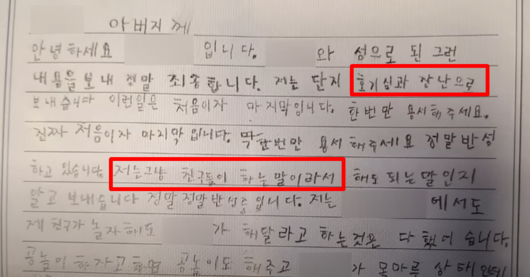 아버지께
안녕하세요 입니다. 와 성으로 된 그런
내용을 보내 정말 죄송합니다. 저는 단지 호기심과 장난으로
보내습니다 이런일은 처음이자 마지막입니다. 한번만 용서해주세요.
진자 처음이자 마지막 입니다. 딱 한번만 용서 해주세요 정말반성
하고 있습니다. 저는그냥 친구들이 하는 말이라서 해도 되는 말 인지
알고 보내습니다 정말 정말반성 니다. 저는 에게도
제 친구가 놀자해도 가 해달라고 하는것은 다 했 습니다.
공놀이 하자고 하면 공놀이도 해주고 가 목마르